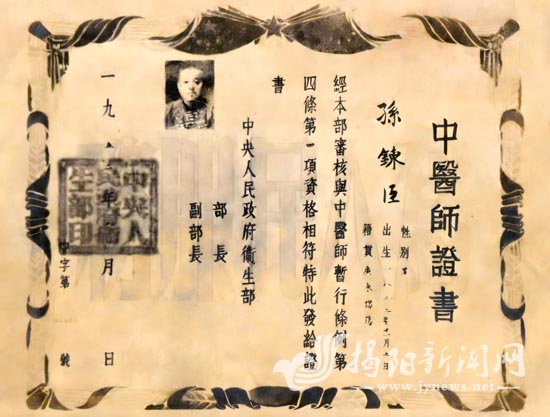 中醫師證書
孫鍊臣
性別
出生
籍貫 廣東揭陽
經本部審核與中醫師暫行條例第
四條第一項資格相符特此發給證
書
中央人民政府衛生部
部長
副部長
一九 年 月 日
中央人民政府衛生部印
中字第 號
揭阳新闻网
www.jynews.net